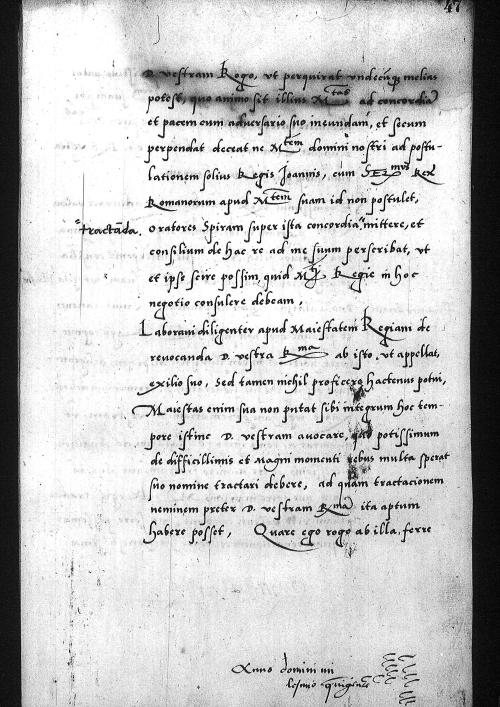 47
D. vestram Rogo, vt perquirat vndecūq; melius
potest, quo animo sit illius M^tas ad concordiā
et pacem cum adversario suo ineundam, et secum
perpendat deceat ne M^tem domini nostri ad postu-
lationem solius Regis Joannis, cum S Rex
Romanorum apud M^tem suam id non postulet,
tractāda,
oratores Spiram super ista concordia mittere, et
consilium de hac re ad me suum perscribat, vt
et ipse scire possim quid M Regie in hoc
negotio consulere debeam,
Laboravi diligenter apud Maiestatem Regiam de
revocanda D. vestra R^ma ab isto, vt appellat,
exilio suo, Sed tamen nichil proficere hactenus potui,
Maiestas enim sua non putat sibi integrum hoc tem-
pore istinc D. vestram avocare, quo potissimum
de difficillimis et Magni momenti rebus multa sperat
suo nomine tractari debere, ad quam tractacionem
neminem preter D. vestram R^mā ita aptum
habere posset, Quare ego rogo ab illa, ferre
Anno domini mi
lesimo